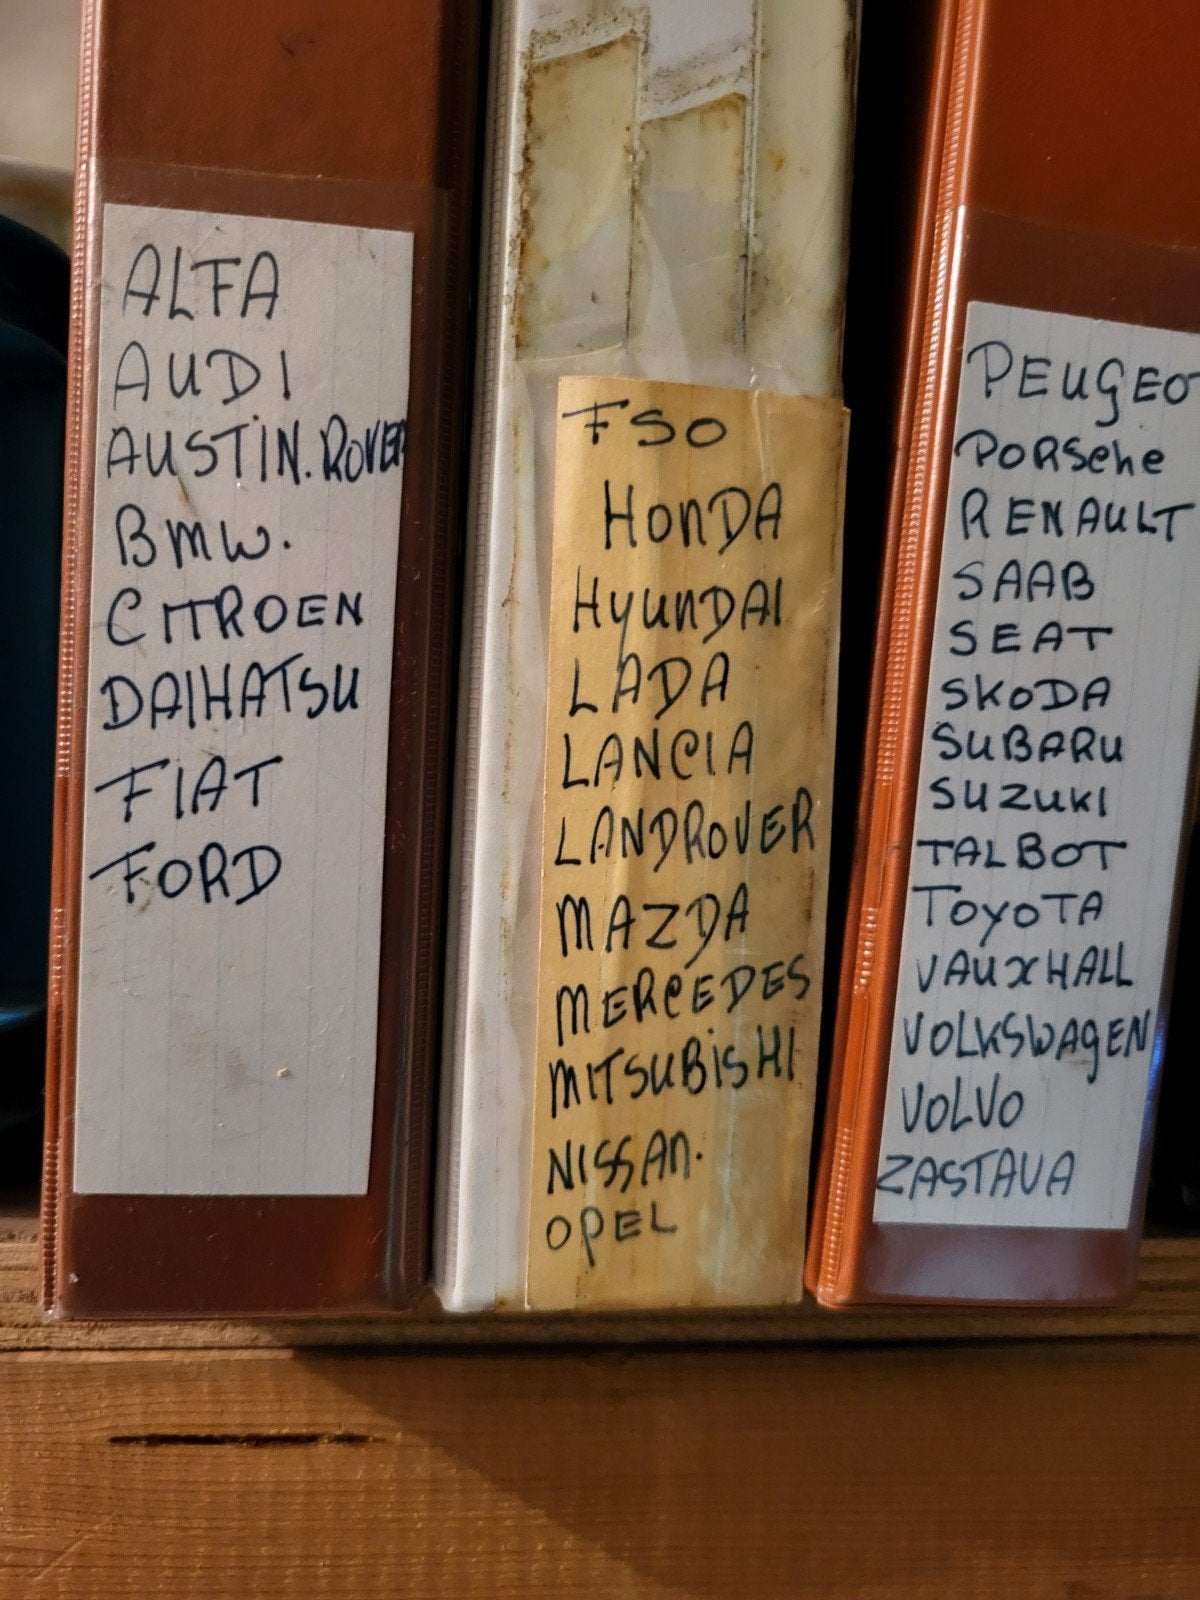 ALFA
AUDI
AUSTIN.ROVER
BMW.
CITROEN
DAIHATSU
FIAT
FORD
FSO
HONDA
HYUNDAI
LADA
LANCIA
LANDROVER
MAZDA
MERCEDES
MITSUBISHI
NISSAN.
OPEL
PEUGEOT
PORSche
RENAULT
SAAB
SEAT
SKODA
SUBARU
SUZUKI
TALBOT
TOYOTA
VAUXHALL
VOLKSWAGEN
VOLVO
ZASTAVA